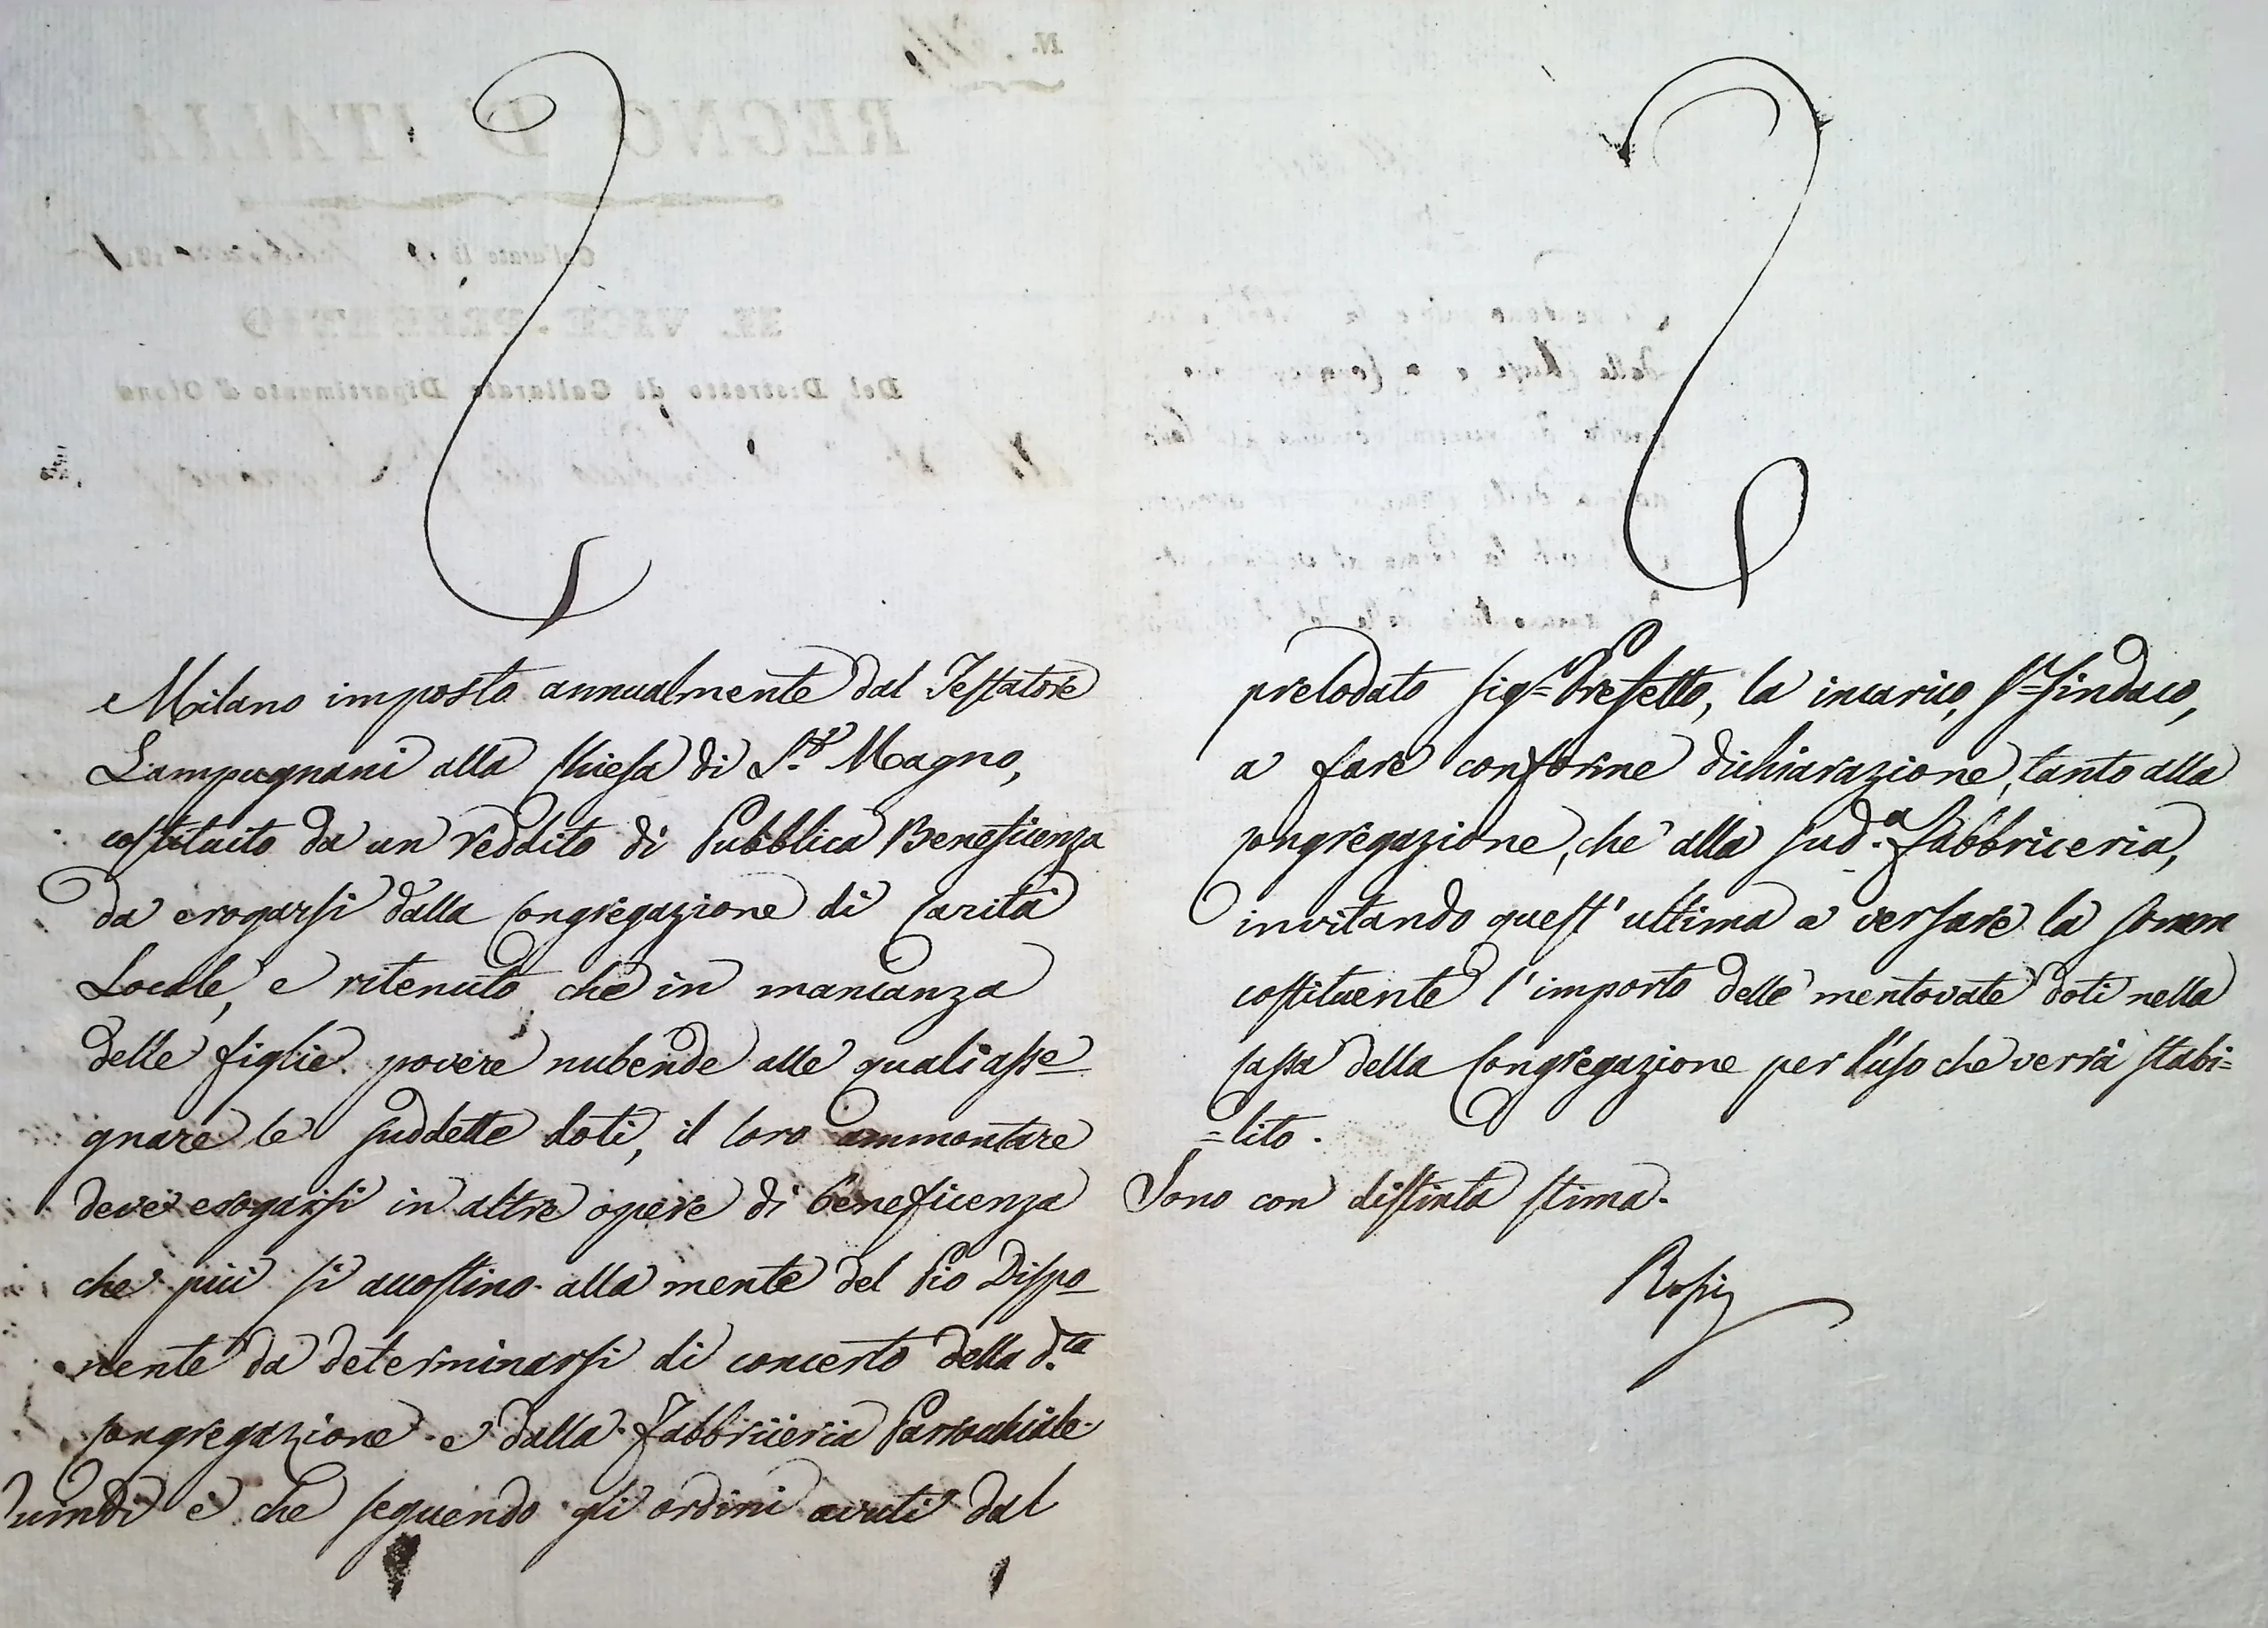 Milano imposto annualmente dal Testatore
Lampugnani alla Chiesa di S.r Magno,
costituito da un reddito di Pubblica Beneficenza
da erogarsi dalla Congregazione di Carità
Locale, e ritenuto che in mancanza
delle figlie povere nubende alle quali asse=
gnare le suddette doti, il loro ammontare
deve erogarsi in altre opere di beneficenza
che più si accostino alla mente del Pio Dispo=
nente da determinarsi di concerto della d.ta
Congregazione e dalla Fabbriceria Parrocchiale
Quindi è che seguendo gli ordini avuti dal
prelodato Sig.r Prefetto, la incarico, S.r Sindaco,
a fare conforme dichiarazione, tanto alla
Congregazione, che alla sud.a Fabbriceria,
invitando quest'ultima a versare la somm
costituente l'importo delle mentovate doti nella
Cassa della Congregazione per l'uso che verrà stabi=
=lito.
Sono con distinta stima.
N.
REGNO D'ITALIA
Gallarate li
IL VICE-PREFETTO
Del Distretto di Gallarate Dipartimento d'Olona